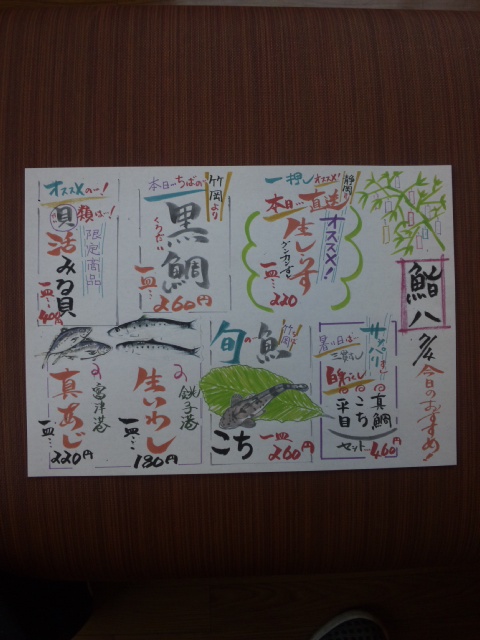 鮨八
今日のおすすめ!
一押しオススメ!
静岡より
本日…直送
オススメ!
生しらす
グンカンずし
一皿…220
本日…ちばの
竹岡より
黒鯛
くろだい
一皿…260円
オススメの…!
貝類は…!
限定商品
活みる貝
一皿…400円
サッパリすし
暑い日は…
三貫もり
白身づくし
真鯛
こち
平目
セット…460円
旬の魚
竹岡
こち
一皿…260円
銚子港の
生いわし
一皿…180円
富津港の
真あじ
一皿…220円